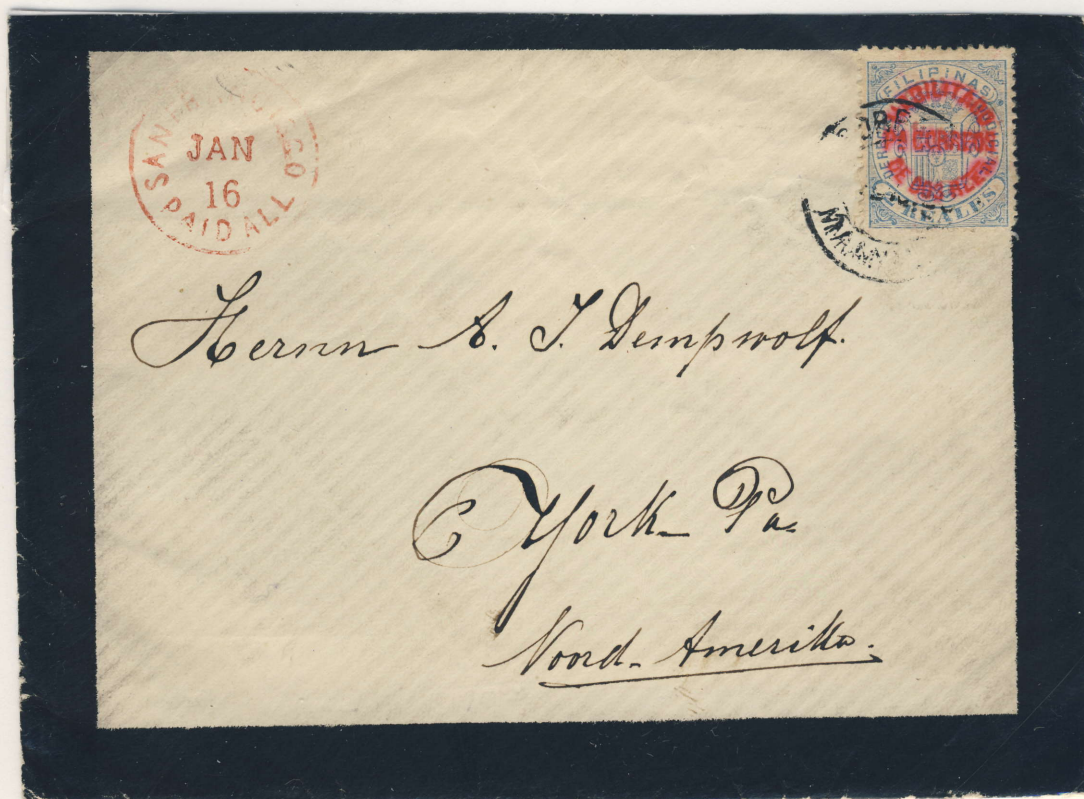 SAN FRANCISCO
JAN
16
PAID ALL
FILIPINAS
HABILITADO
PA CORREOS
DE DOS
REALES
Herrn A. J. Dempwolf.
York Pa
Noord-Amerika.